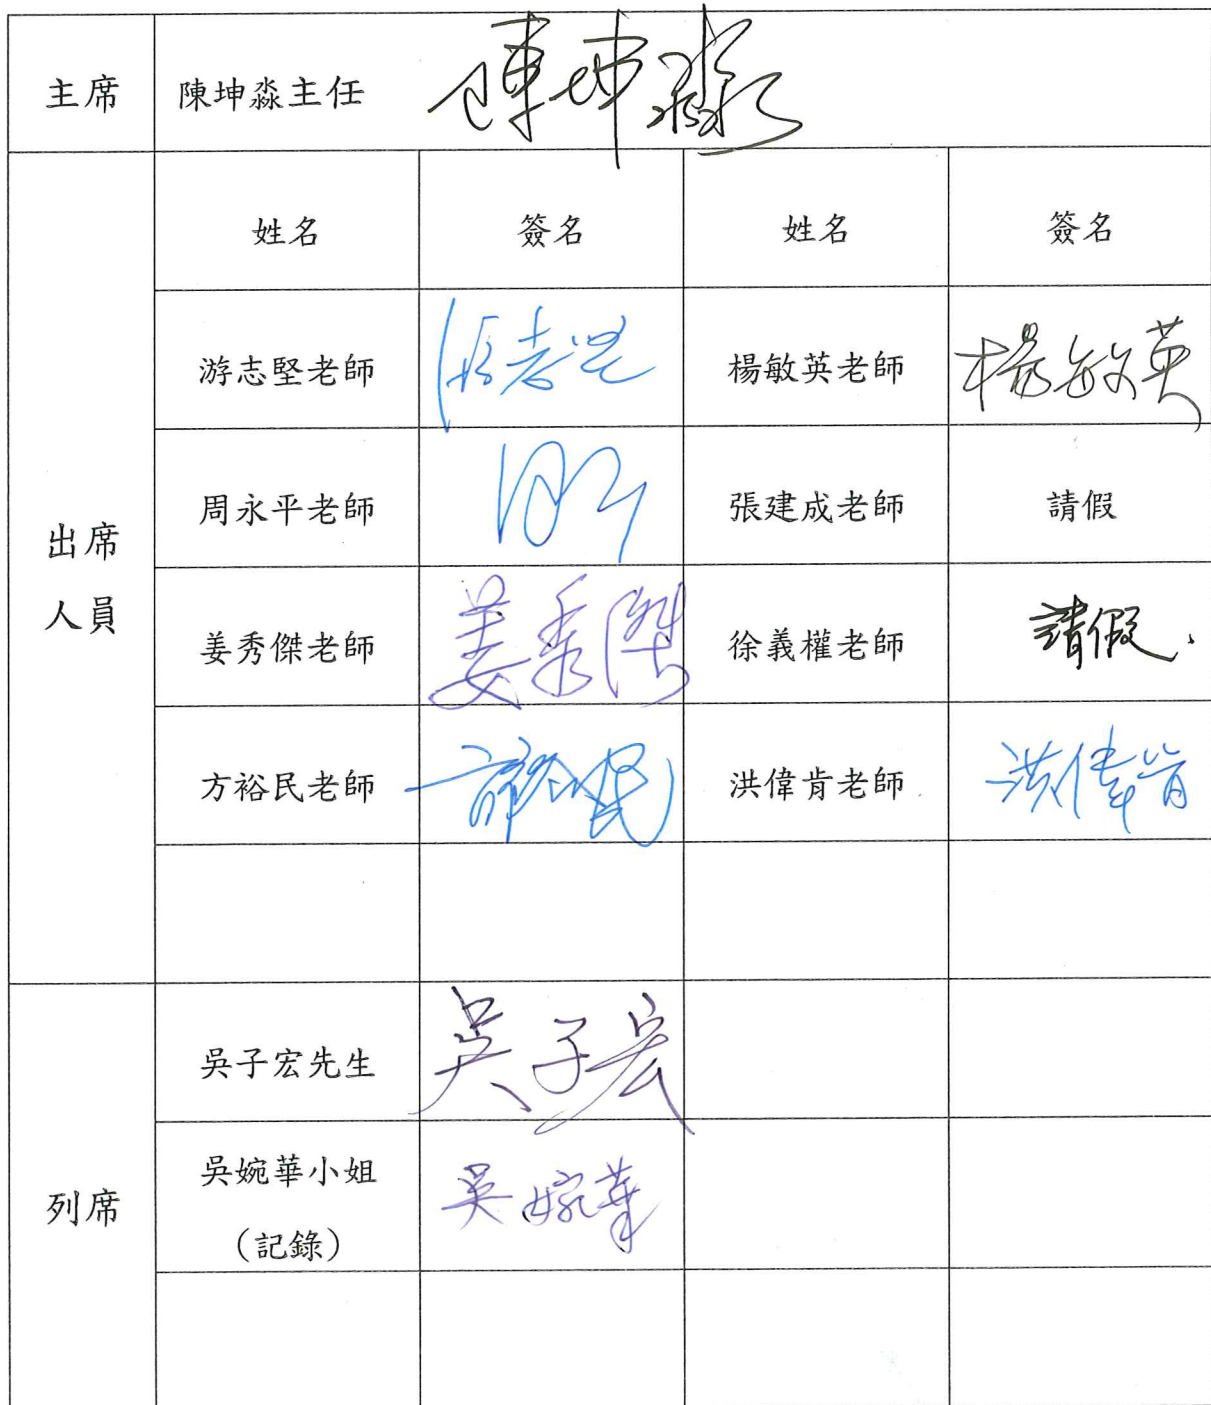 主席 陳坤淼主任 陳坤淼
姓名 簽名 姓名 簽名
游志堅老師 游志堅 楊敏英老師 楊敏英
周永平老師 張建成老師 請假
出席
人員
姜秀傑老師 姜秀傑 徐義權老師 請假.
方裕民老師 洪偉肯老師 洪偉肯
吳子宏先生 吳子宏
列席
吳婉華小姐 吳婉華
(記錄)